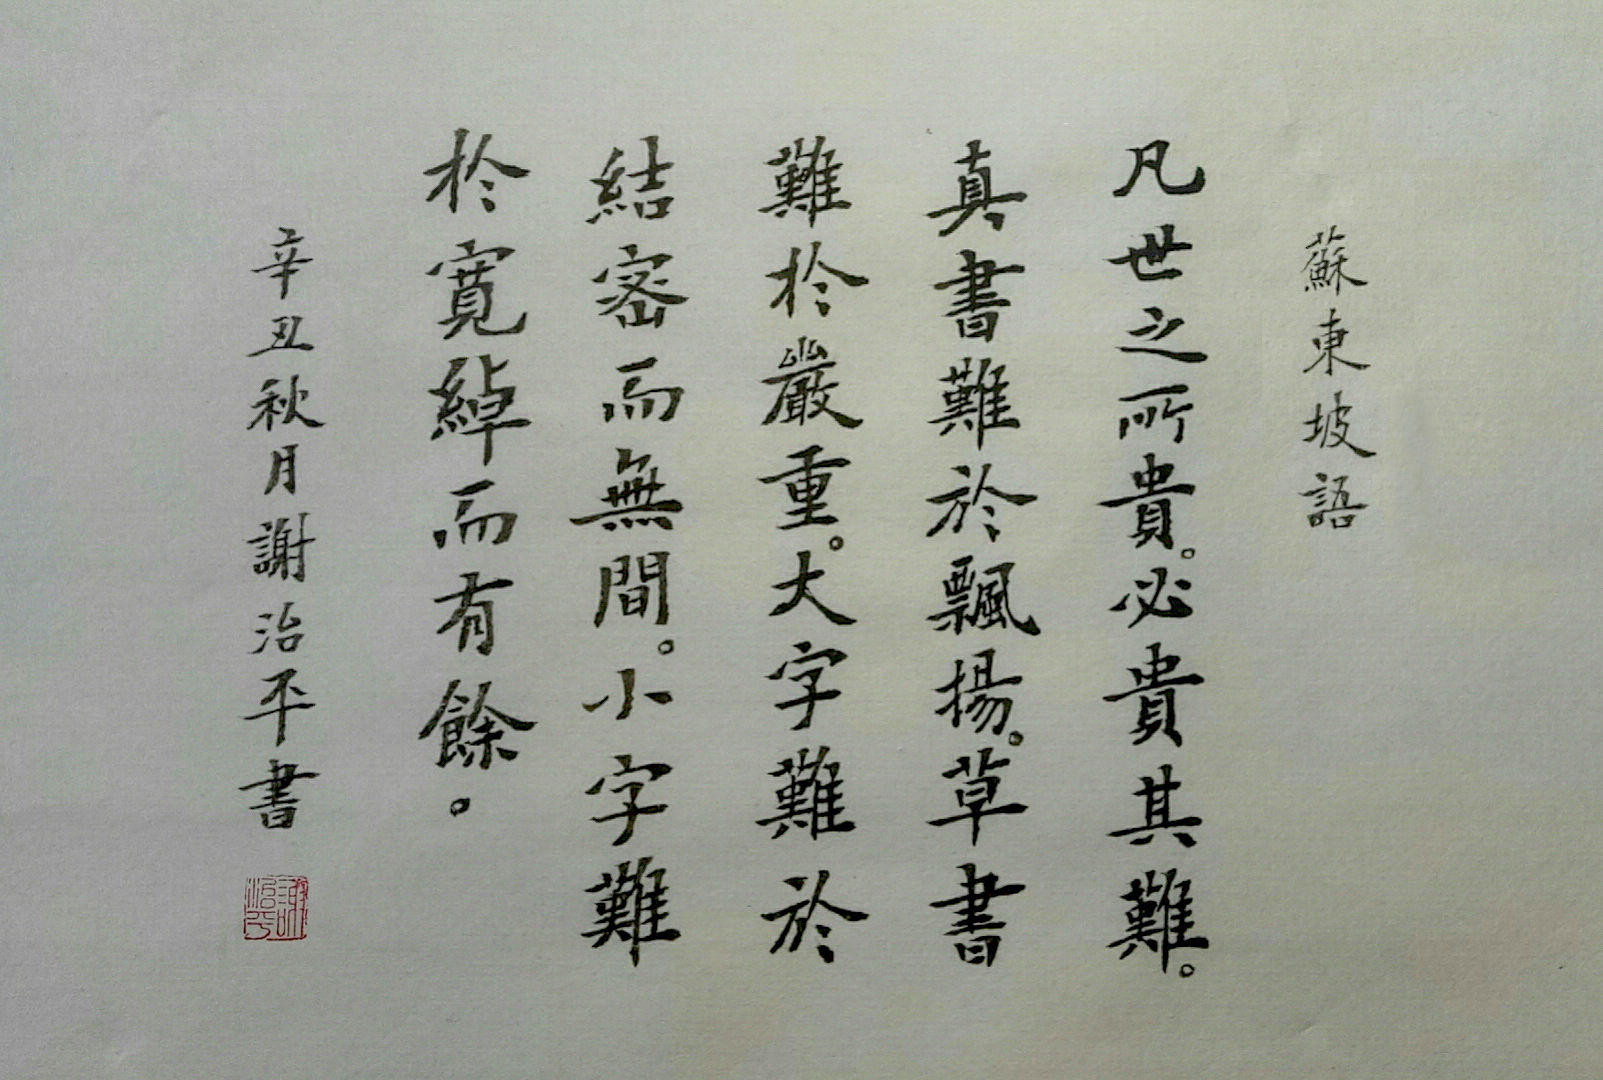 蘇東坡語
凡世之所貴。必貴其難。
真書難於飄揚。草書
難於嚴重。大字難於
結密而無間。小字難
於寬綽而有餘。
辛丑秋月謝治平書
謝治平